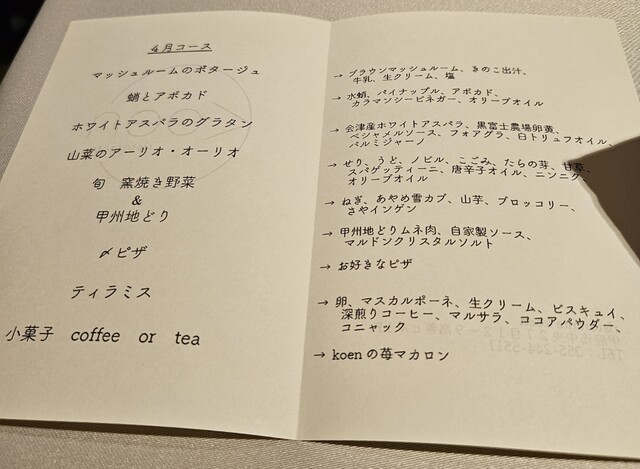 4月コース
マッシュルームのポタージュ
蛸とアボカド
ホワイトアスパラのグラタン
山菜のアーリオ・オーリオ
旬 窯焼き野菜
&
甲州地どり
〆ピザ
ティラミス
小菓子 coffee or tea
→ ブラウンマッシュルーム、きのこ出汁、
牛乳、生クリーム、塩
→ 水蛸、パイナップル、アボカド、
カラマンシービネガー、オリーブオイル
→ 会津産ホワイトアスパラ、黒富士農場卵黄、
ベシャメルソース、フォアグラ、白トリュフオイル、
パルミジャーノ
→ せり、うど、ノビル、こごみ、たらの芽、甘草、
スパゲッティーニ、唐辛子オイル、ニンニク、
オリーブオイル
→ ねぎ、あやめ雪カブ、山芋、ブロッコリー、
さやインゲン
→ 甲州地どりムネ肉、自家製ソース、
マルドンクリスタルソルト
→ お好きなピザ
→ 卵、マスカルポーネ、生クリーム、ビスキュイ、
深煎りコーヒー、マルサラ、ココアパウダー、
コニャック
→ koenの苺マカロン